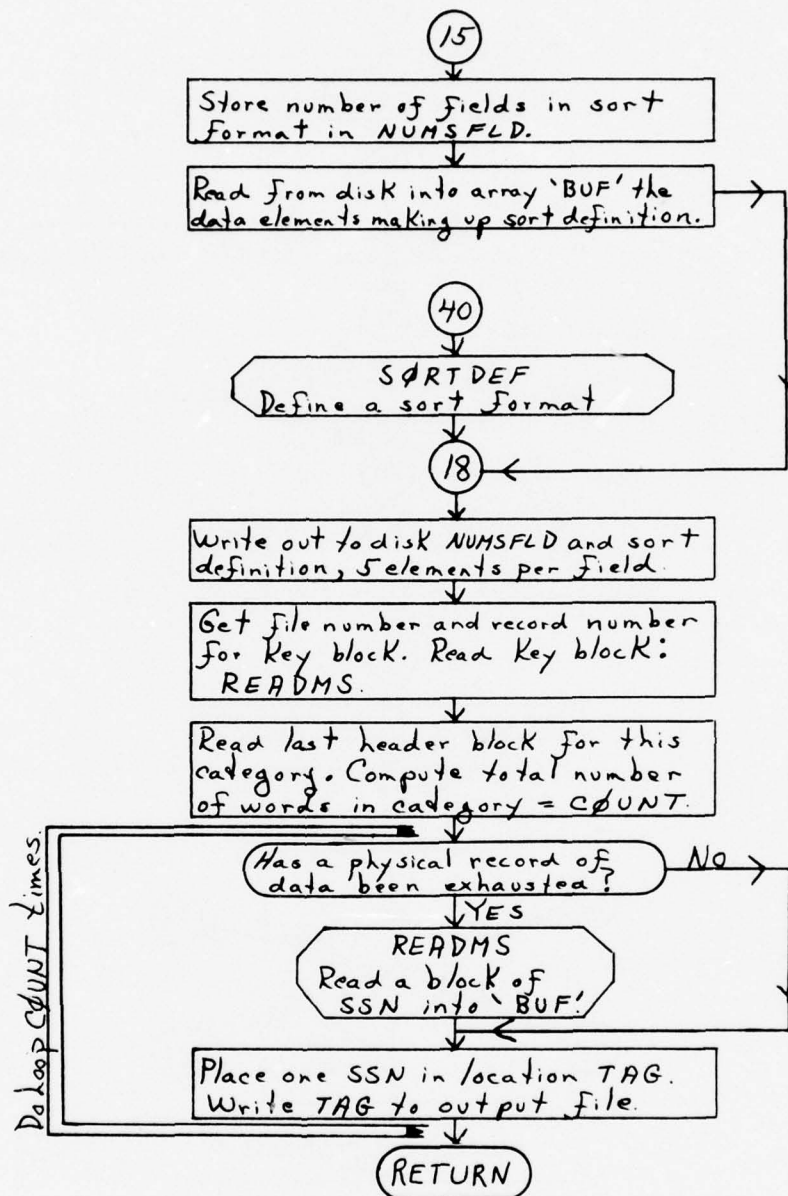 15
Store number of fields in sort
format in NUMSFLD.
Read from disk into array 'BUF' the
data elements making up sort definition.
40
SØRTDEF
Define a sort format
18
Write out to disk NUMSFLD and sort
definition, 5 elements per field.
Get file number and record number
for Key block. Read Key block:
READMS.
Read last header block for this
category. Compute total number
of words in category = CØUNT.
Do loop CØUNT times.
Has a physical record of
data been exhausted?
NO
YES
READMS
Read a block of
SSN into 'BUF'.
Place one SSN in location TAG.
Write TAG to output file.
RETURN